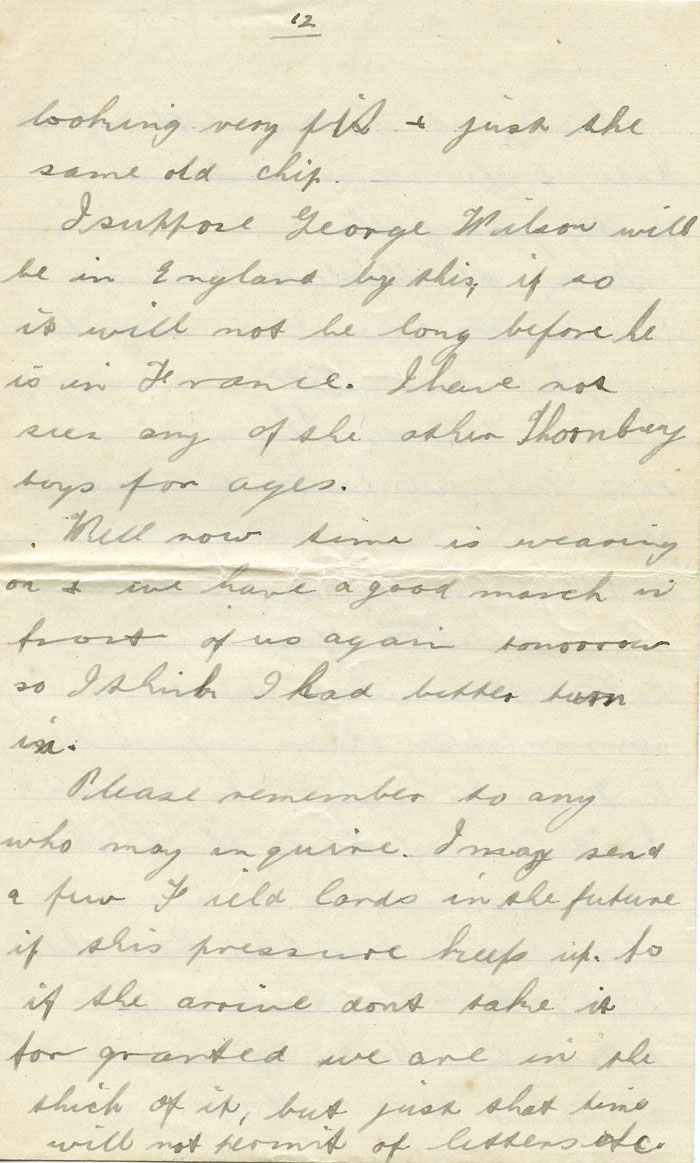 12
looking very fit & just the
same old chip.
I suppose George Wilson will
be in England by this, if so
it will not be long before he
is in France. I have not
seen any of the other Thornbury
boys for ages.
Well now time is wearing
on & we have a good march in
front of us again tomorrow
so I think I had better turn
in.
Please remember to any
who may inquire. I may send
a few Field Cards in the future
if this pressure keeps up. So
if the arrive dont take it
for granted we are in the
thick of it, but just that time
will not permit of letters etc.